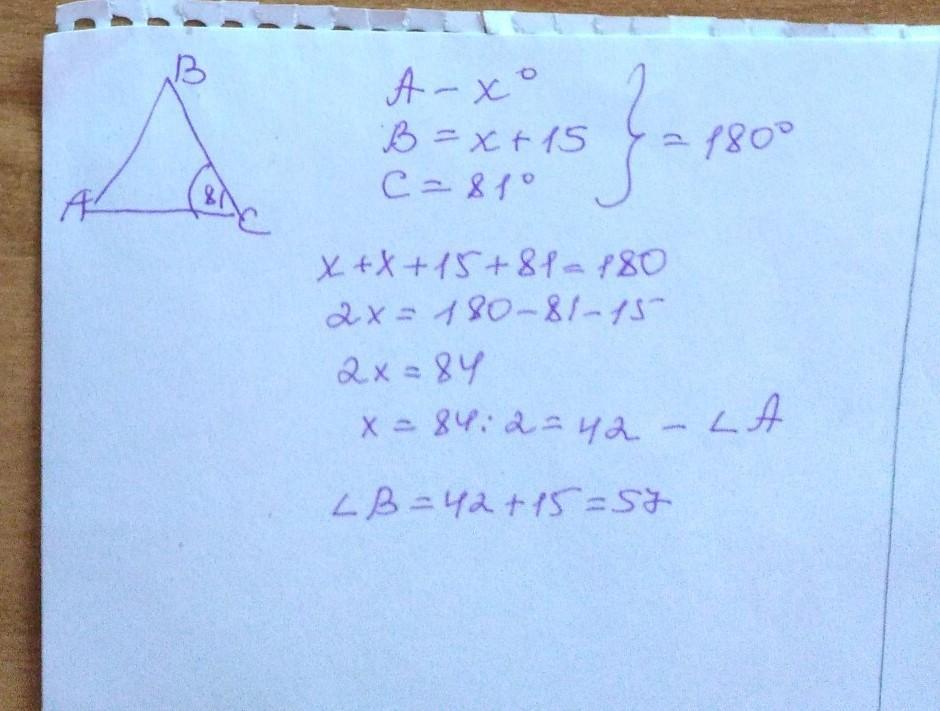 B
A
81
C
A - x°
B = x + 15
C = 81°
} = 180°
x + x + 15 + 81 = 180
2x = 180 - 81 - 15
2x = 84
x = 84 : 2 = 42 - ∠A
∠B = 42 + 15 = 57